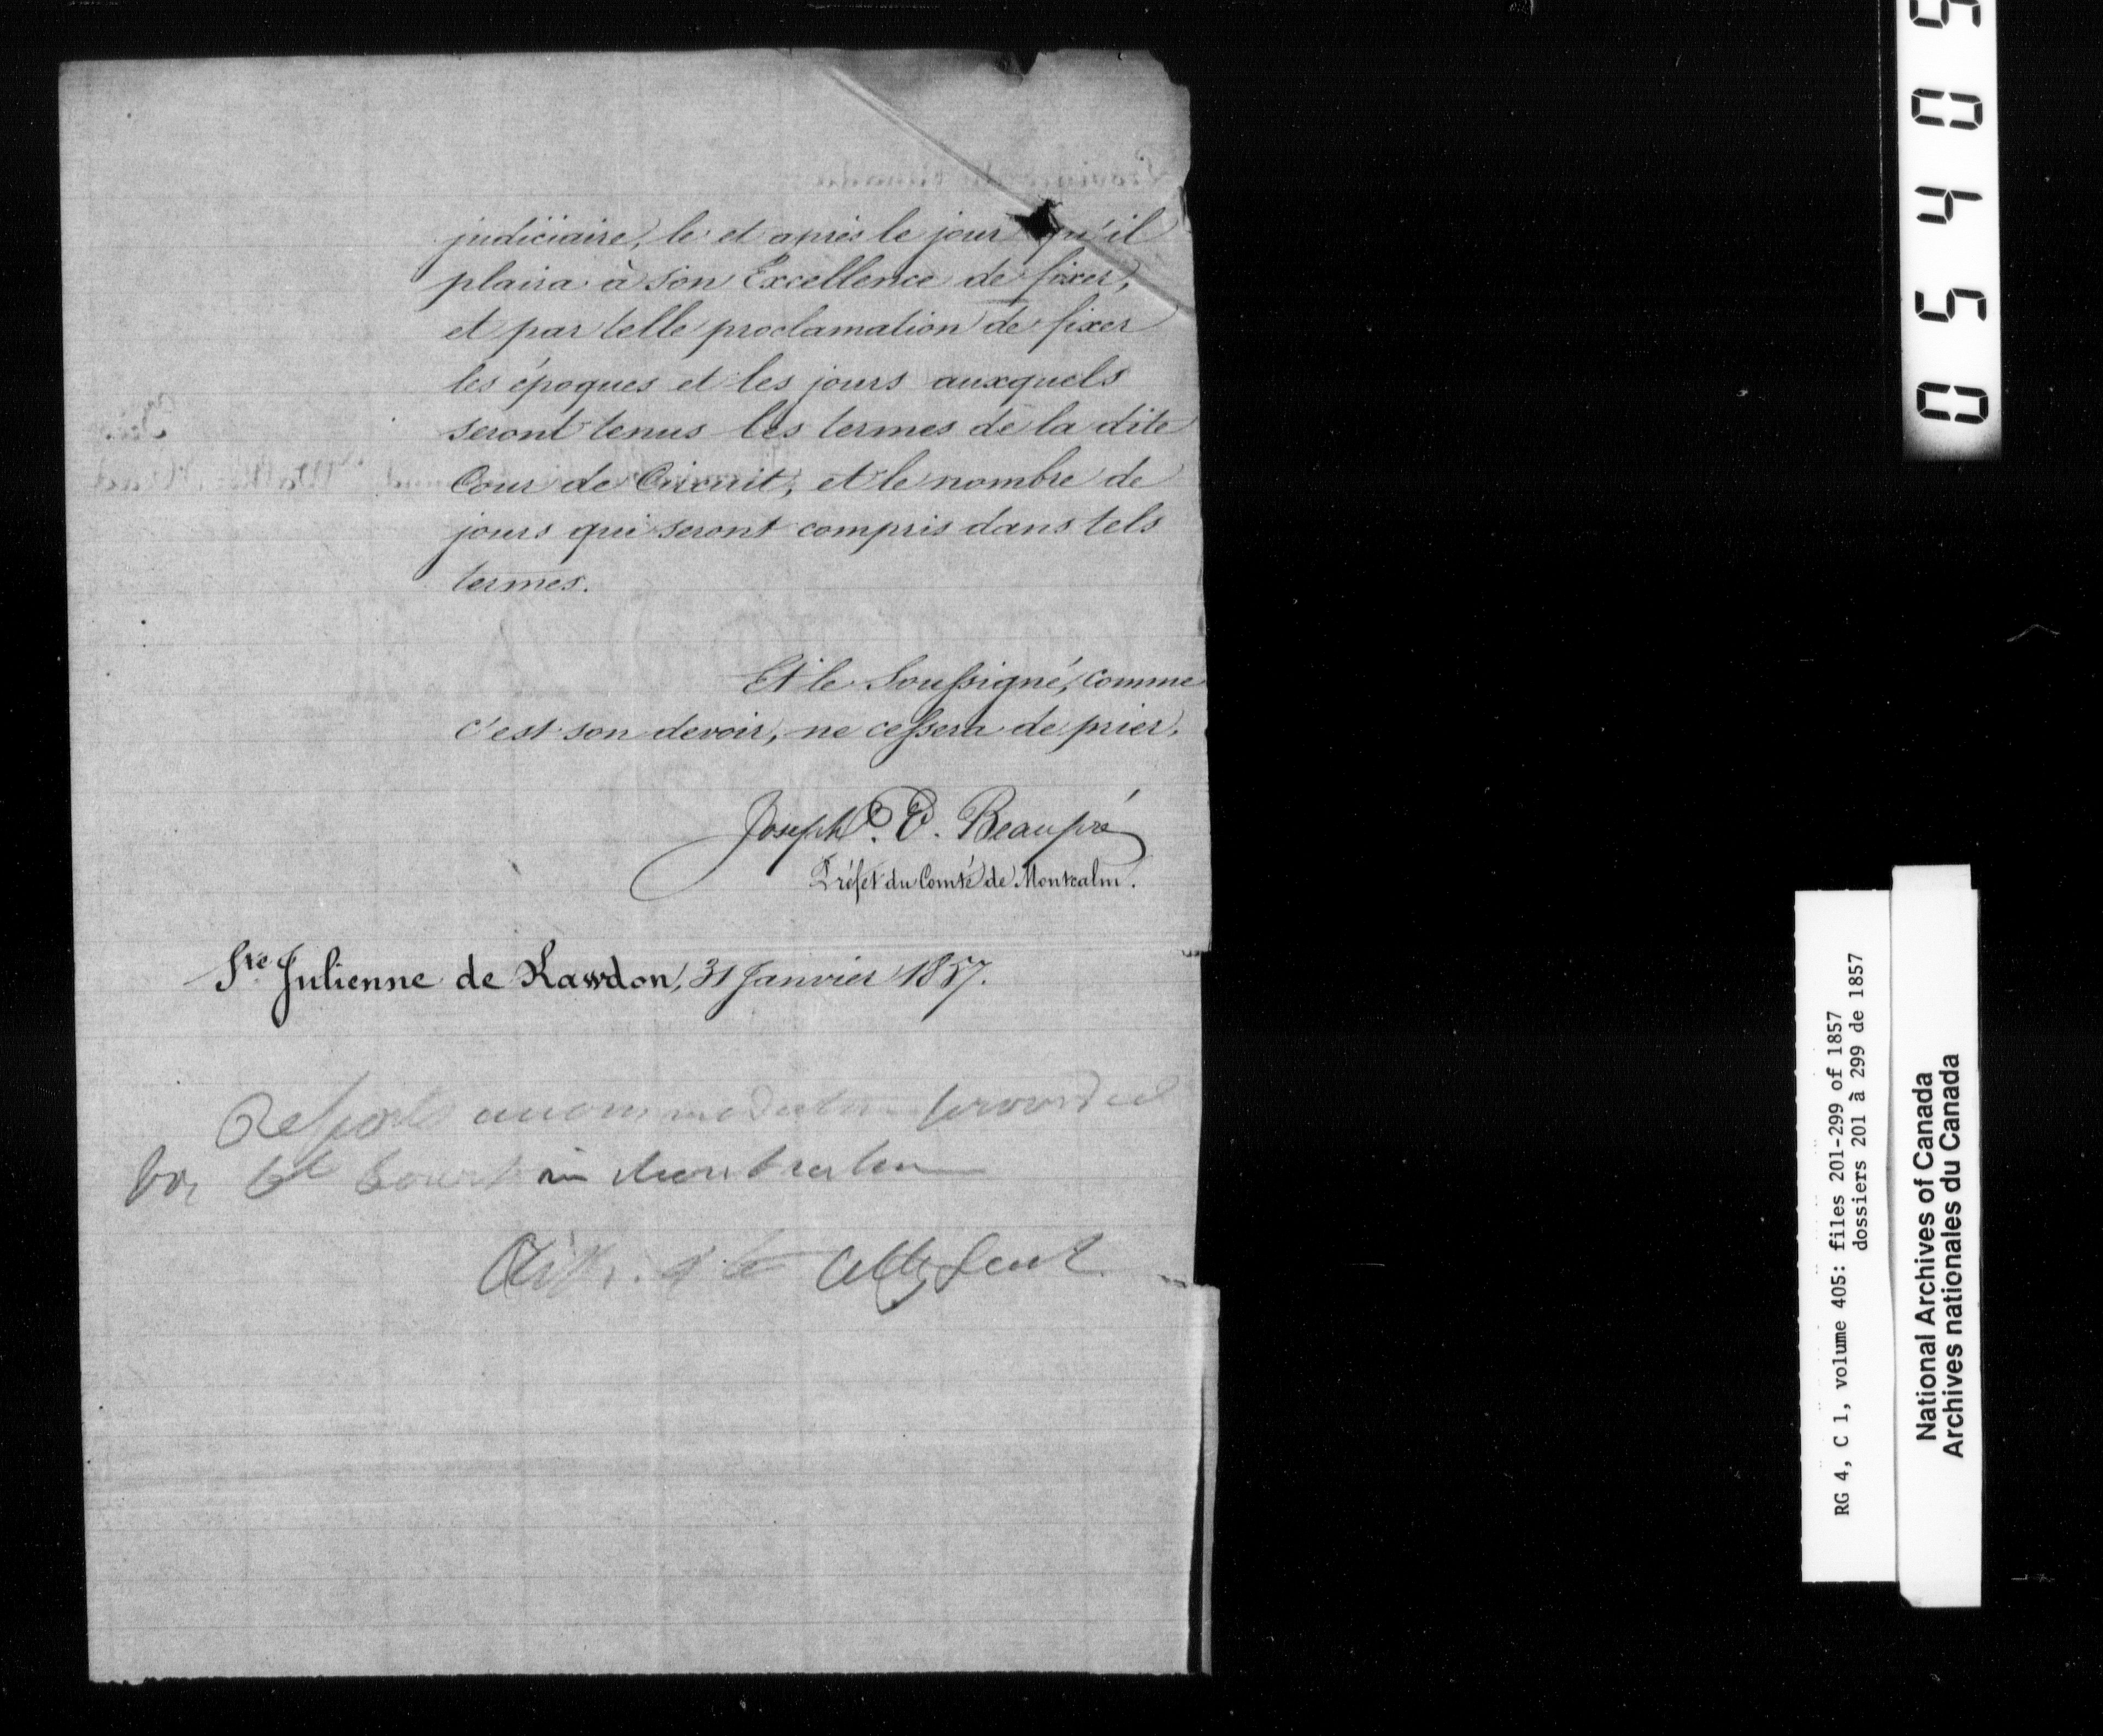 judiciaire, le et après le jour qu'il
plaira à Son Excellence de fixer,
et par telle proclamation de fixer
les époques et les jours auxquels
seront tenus les termes de la dite
Cour de Circuit, et le nombre de
jours qui seront compris dans tels
termes.
Et le Soussigné, comme
c'est son devoir, ne cessera de prier.
Joseph E. Beaupré
Préfet du Comté de Montcalm.
Ste Julienne de Rawdon, 31 Janvier 1857.
accommodation provided
for Ct Court in Montcalm
05405
RG 4, C 1, volume 405: files 201-299 of 1857
dossiers 201 à 299 de 1857
National Archives of Canada
Archives nationales du Canada